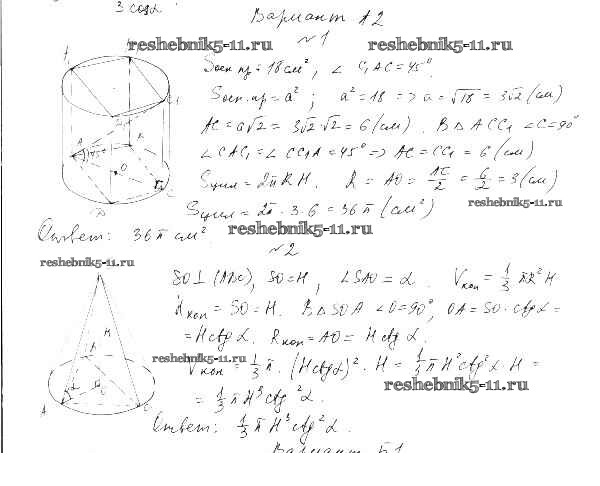 3 cosα
Вариант А2
reshebnik5-11.ru reshebnik5-11.ru
№1
Sосн.пр = 18 см², ∠ C₁AC = 45°.
Sосн.пр = a²; a² = 18 => a = √18 = 3√2 (см)
AC = a√2 = 3√2·√2 = 6 (см). В △ ACC₁ ∠C = 90°
∠ CAC₁ = ∠ CC₁A = 45° => AC = CC₁ = 6 (см)
Sцил = 2πRH. R = AO = AC/2 = 6/2 = 3 (см)
reshebnik5-11.ru
Sцил = 2π · 3 · 6 = 36π (см²)
Ответ: 36π см².
reshebnik5-11.ru
№2
reshebnik5-11.ru
SO⊥(ABC), SO = H, ∠SAO = α. Vкон = 1/3 πR²H
Hкон = SO = H. В △ SOA ∠O = 90°, OA = SO · ctg α =
= H ctg α. Rкон = AO = H ctg α
reshebnik5-11.ru
Vкон = 1/3 π · (H ctg α)² · H = 1/3 π H² ctg² α · H =
reshebnik5-11.ru
= 1/3 π H³ ctg² α.
Ответ: 1/3 π H³ ctg² α.
Вариант Б1